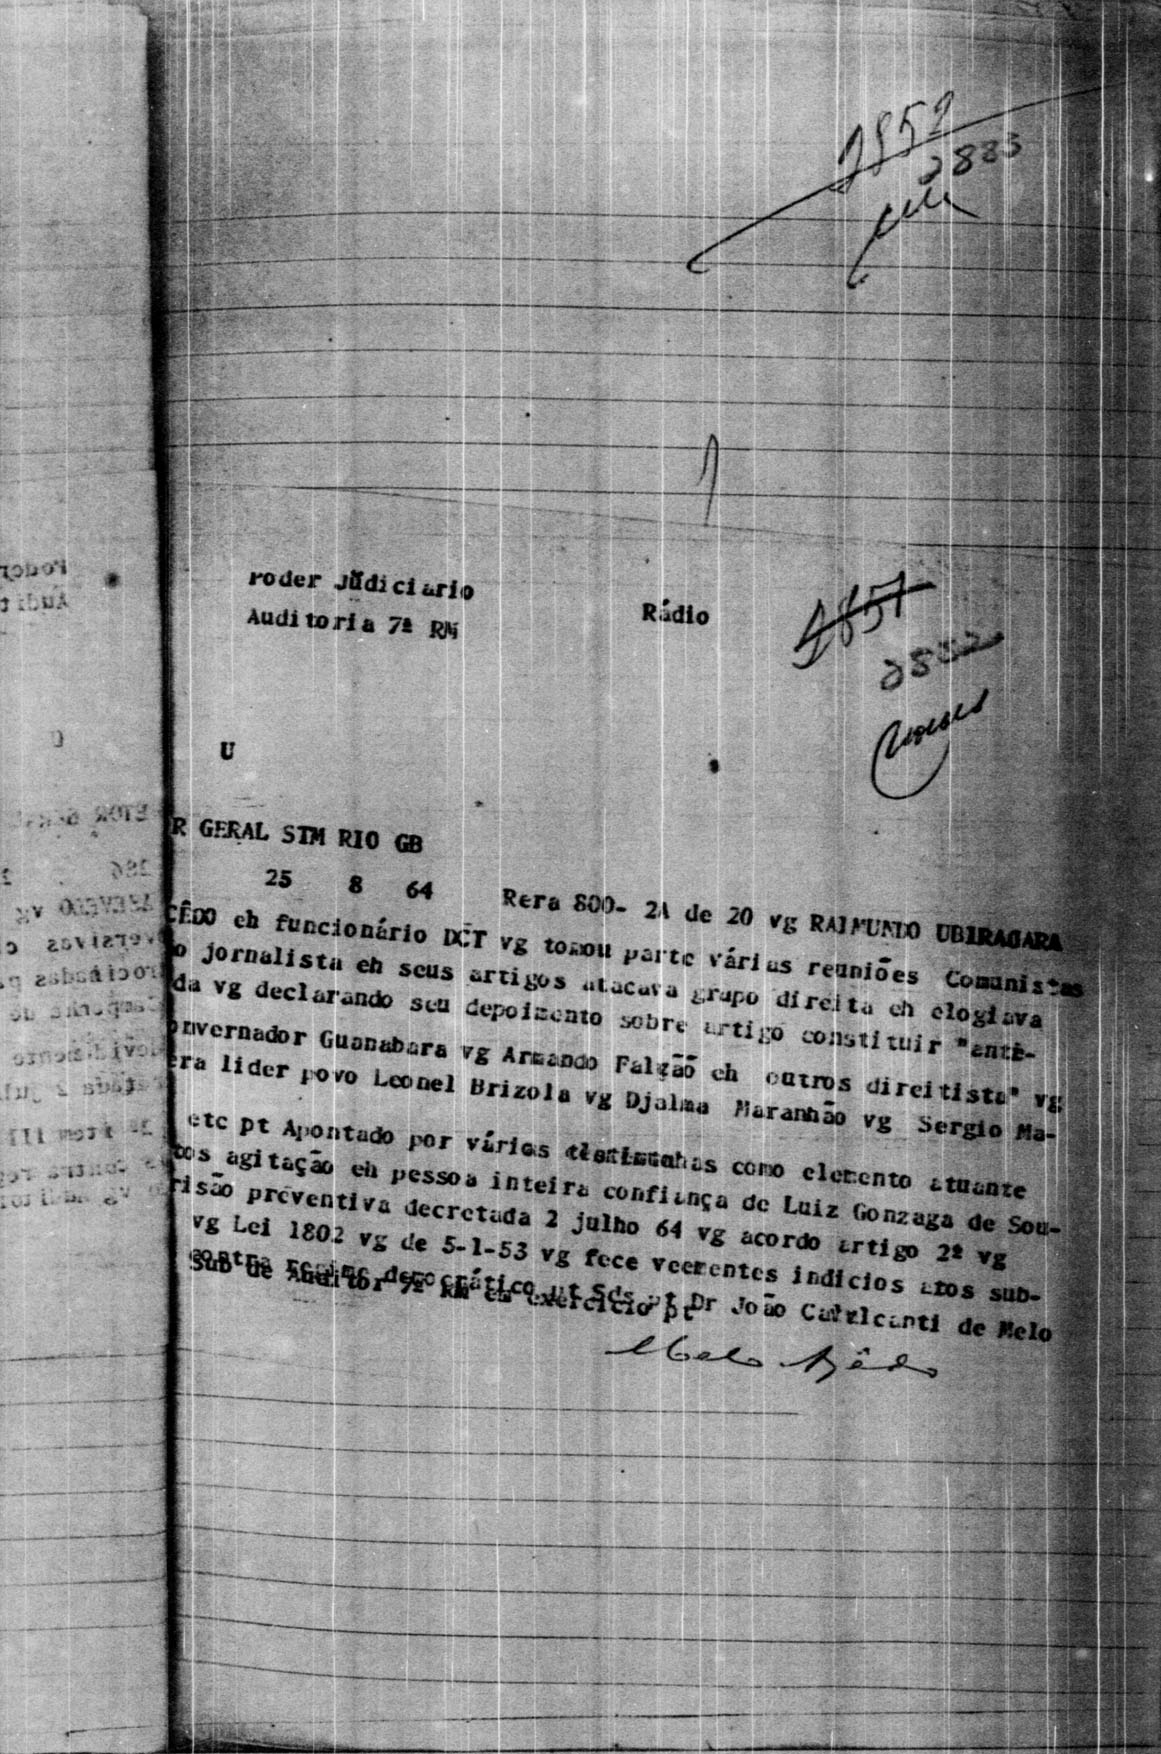 2852
2883
Poder Judiciario
Auditoria 7ª RM
Rádio
2851
2882
U
R GERAL STM RIO GB
25 8 64 Rera 800- 2A de 20 vg RAIMUNDO UBIRAGARA
CÊDO eh funcionário DCT vg tomou parte várias reuniões Comunistas
o jornalista eh seus artigos atacava grupo direita eh elogiava
da vg declarando seu depoimento sobre artigo constituir "anti-
overnador Guanabara vg Armando Falção eh outros direitista" vg
era lider povo Leonel Brizola vg Djalma Maranhão vg Sergio Ma-
etc pt Apontado por vários como elemento atuante
tos agitação eh pessoa inteira confiança de Luiz Gonzaga de Sou-
risão preventiva decretada 2 julho 64 vg acordo artigo 2ª vg
vg Lei 1802 vg de 5-1-53 vg fece veementes indicios atos sub-
contra regime democrático pt Sds pt Dr João Cavalcanti de Melo
Sub de Auditor 7ª RM em exercicio pt